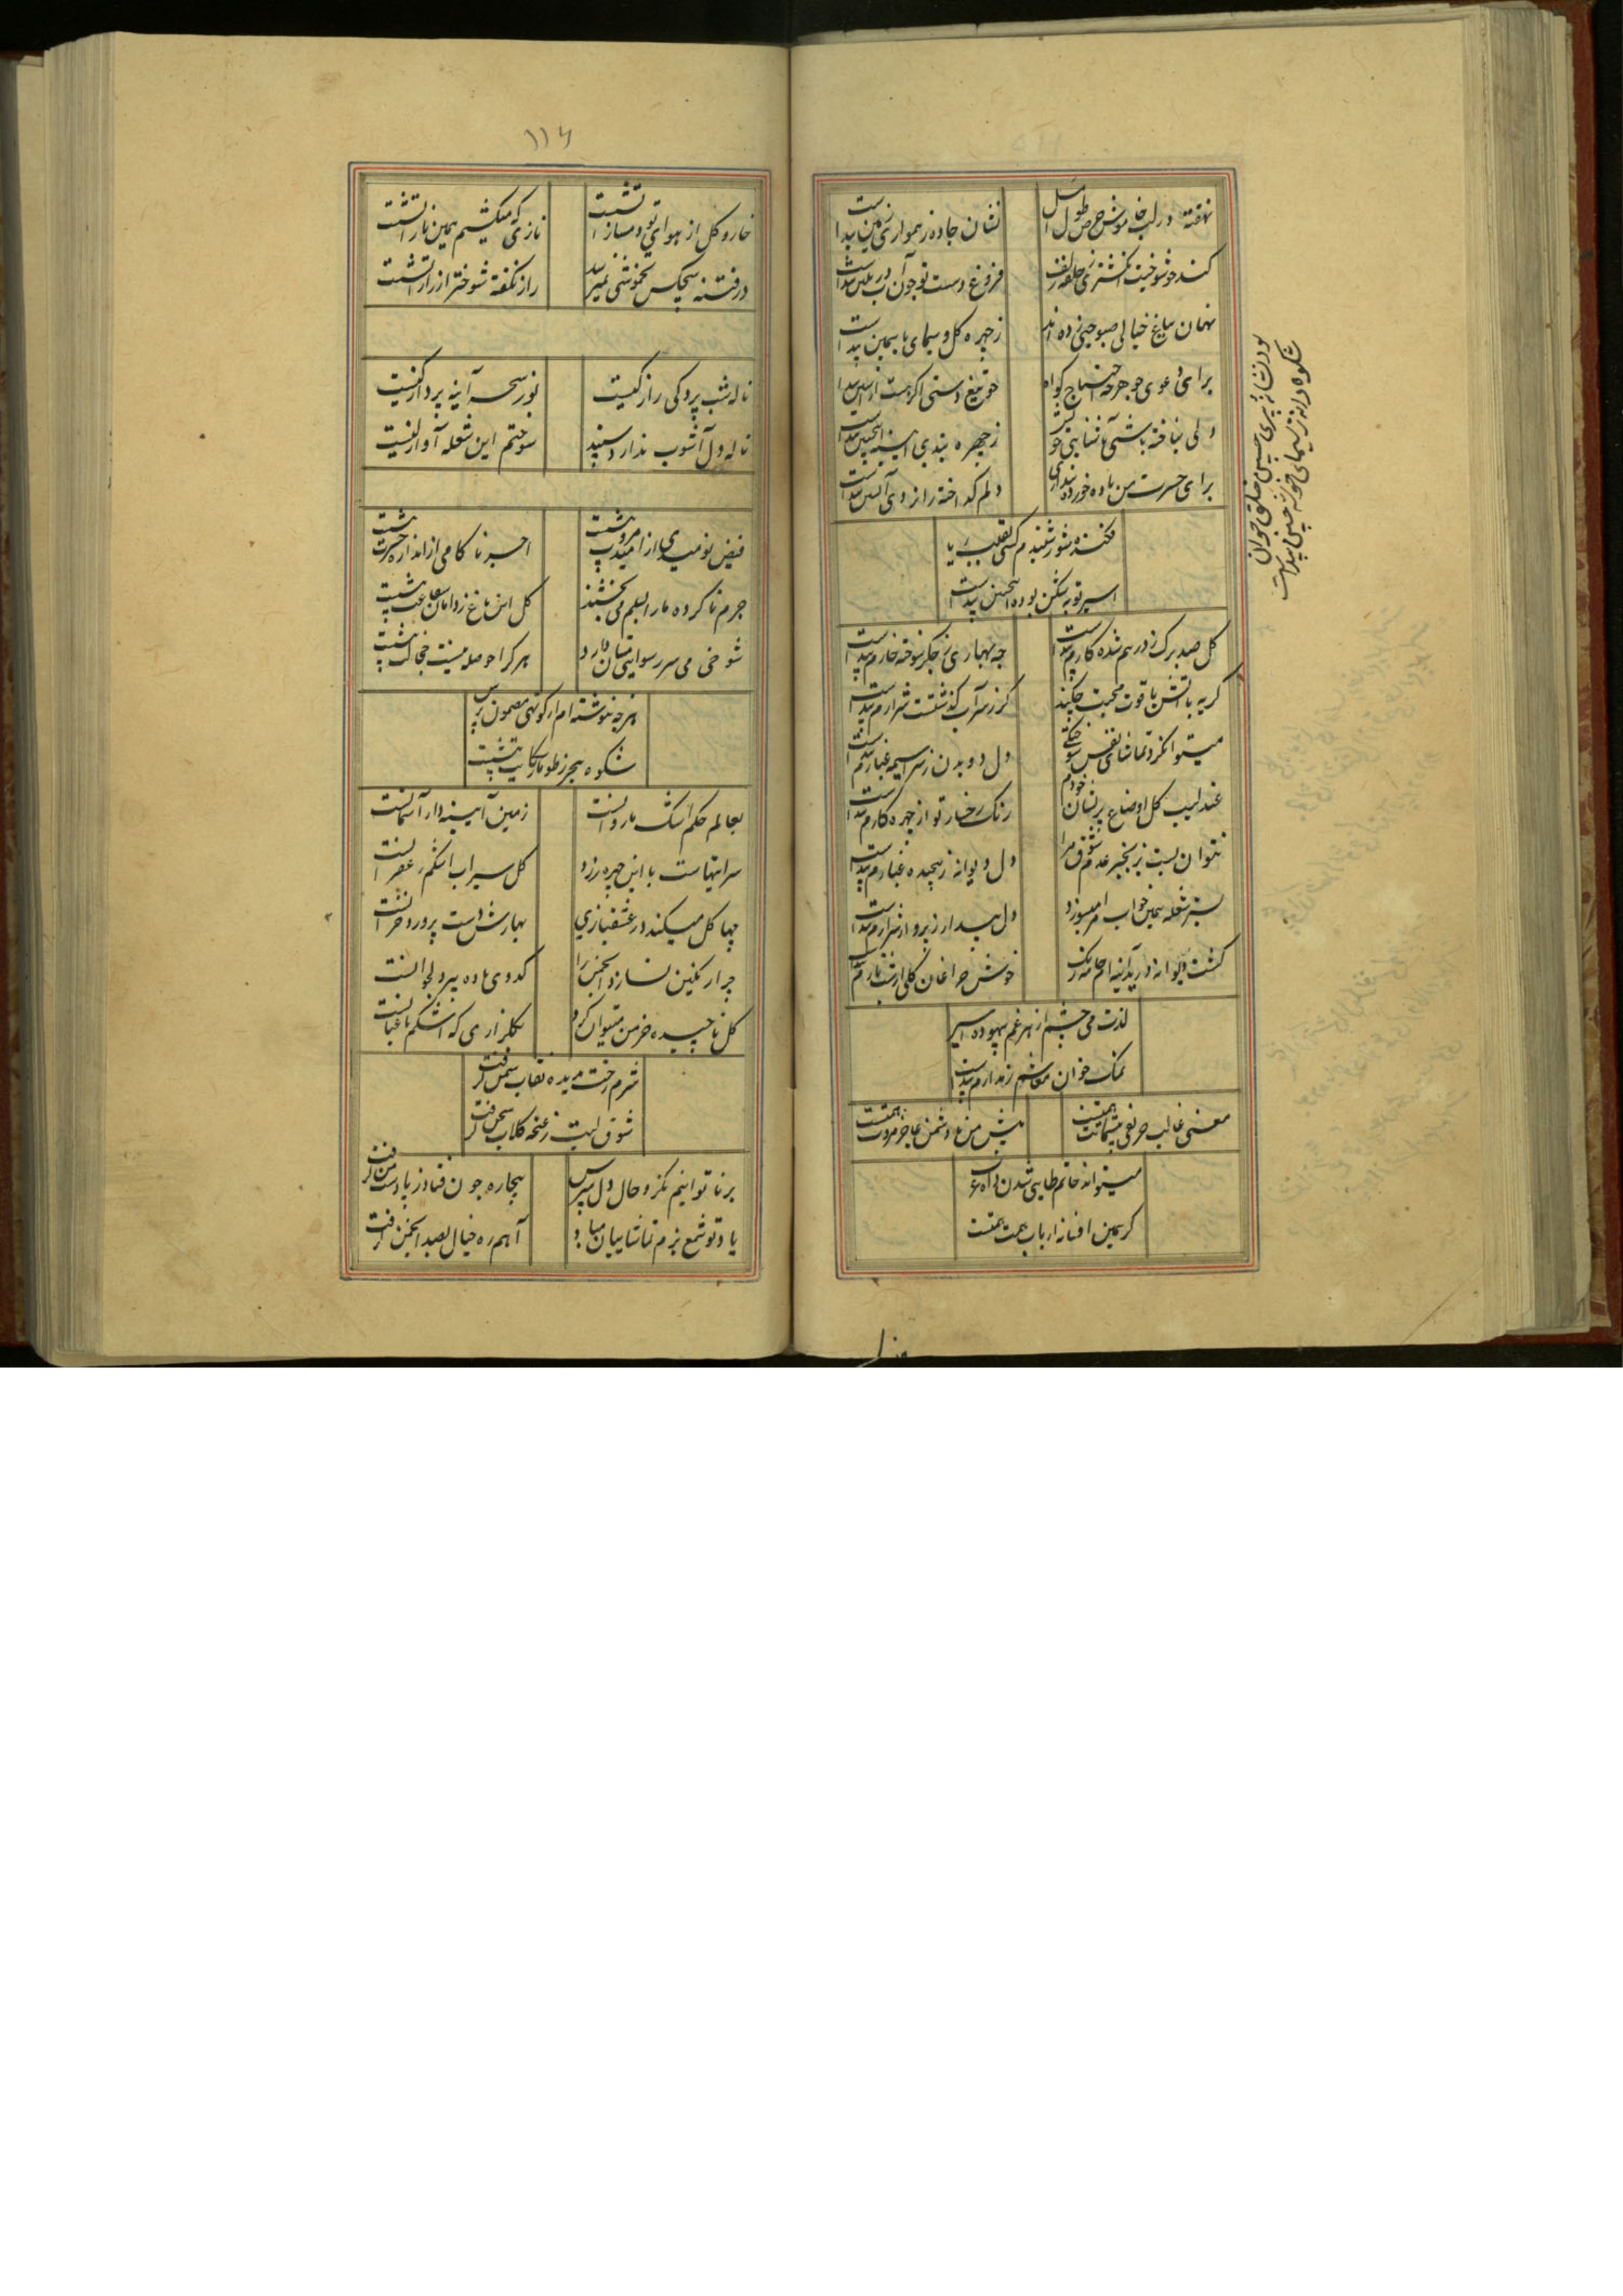 نهفته در لب خاموش حرص طول امل
نشان جاده ز همواری زمین پیداست
کند چو شوخیت انگشتری ز حلقه زلف
فروغ دست تو چون آب در
نهان بباغ خیالی صبوحیی زده اند
ز چهره گل و سیمای یاسمین پیداست
برای دعوی جوهر چه احتیاج گواه
چو تیغ دستی اگر هست ز آستین پیداست
ولی نیافته باشی آشنایی خویش
ز چهره بندی آیینه اینچنین پیداست
برای حسرت من باده خورده پنداری
دلم گداخته از روی آتشین پیداست
شکوه دانه ز سیمای خوشه چینی پیداست
فکنده شور شنیدم کسی بقلب ریا
اسیر توبه شکن بوده اینچنین پیداست
گل صد برگ ز درهم شده کارم پیداست
چه بهاری ز جگر سوخته خارم پیداست
گریه با آتش یاقوت محبت چکند
کز سر آب گذشتست شرارم پیداست
میتوان کرد تماشای نفس سوختگی
دل دویدن ز سراسیمه غبارم پیداست
عندلیب گل اوضاع پریشان خودم
رنگ رخسار تو از چهره کارم پیداست
نتوان بست بزنجیر عدم شوق مرا
دل دیوانه ز پیچیده غبارم پیداست
بستر شعله همین خواب مرا میسوزد
دل بیدار ز پرواز شرارم پیداست
گشت دیوانه و آیینه ام جامه رنگ
خوش چراغان گلی از شب تارم پیداست
لذت می چشم از زهر غم بیهوده اسیر
نمک خوان معاشم ز مدارم پیداست
معنی غالب حریفی
پیش من با دشمن عاجز مروت همتست
میتواند خاتم طایی شدن
کمترین افسانه ارباب همت همتست
۱۱۶
خار و گل از هوای تو دمساز آتشست
نازی که میکشیم همین ناز آتشست
در فتنه هیچکس بخموشی نمیرسد
راز نگفته شوختر از راز آتشست
ناله شب پردگی راز کیست
نور سحر آینه پرداز کیست
ناله دل آشوب ندارد سپند
سوختم این شعله آواز کیست
فیض نومیدی از امید مروت بیشست
اجر ناکامی از اندازه حسرت بیشست
جرم ناکرده ما را بکرم می بخشند
گل این باغ ز دامان شفاعت بیشست
شوخی می سر رسوایی مستان دارد
هر کرا حوصله بیشست خجالت بیشست
هر چه ننوشته ام از کوتهی مضمون پرس
شکوه هجر ز طومار شکایت بیشست
بعالم حکم اشک ما روانست
زمین آیینه دار آسمانست
سرایتهاست با این چهره زرد
گل سیراب اشکم زعفرانست
چها گل میکند در عشقبازی
بهارش دست پرورد خزانست
چرا رنگین نسازد انجمن را
کدوی باده پیر و لجوانست
گل ناچیده خرمن میتوان کرد
بگلزاری که اشکم باغبانست
شرم رخت ندیده نقاب سمن گرفت
شوق لبت ز غنچه گلاب سخن گرفت
بر ناتوانیم نگر و حال دل مپرس
بیچاره چون فتاد ز پا دست من گرفت
یاد تو شمع بزم تماشاییان مباد
آهم ره خیال بصد انجمن گرفت